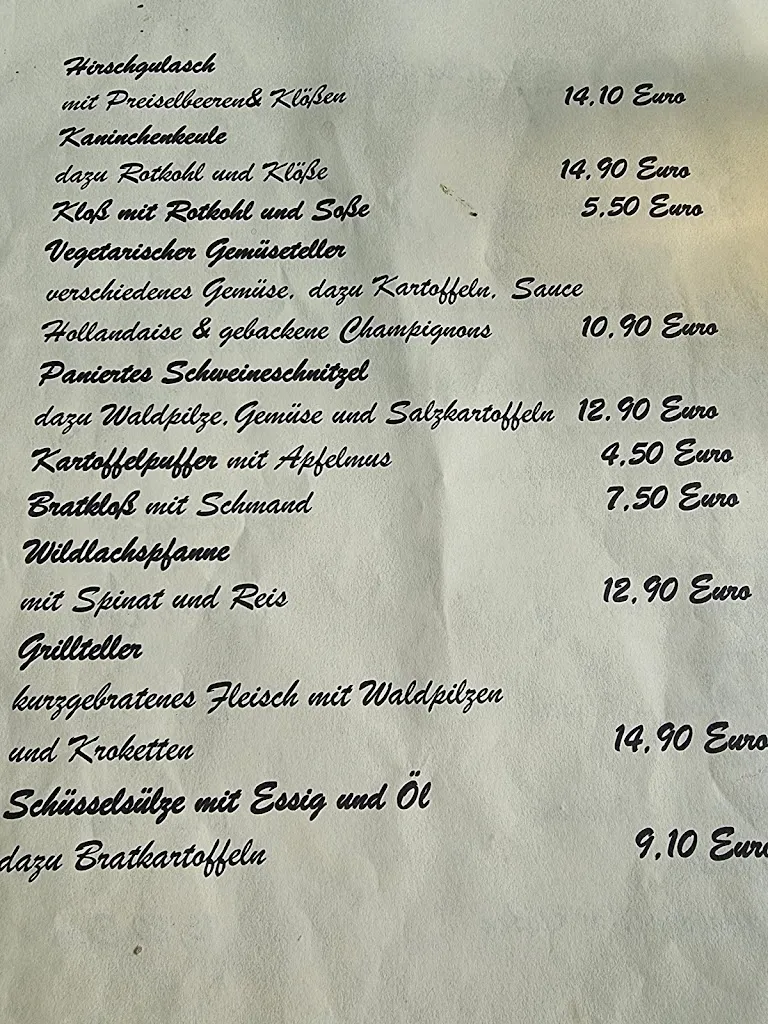 Hirschgulasch
mit Preiselbeeren& Klößen 14,10 Euro
Kaninchenkeule
dazu Rotkohl und Klöße 14,90 Euro
Kloß mit Rotkohl und Soße 5,50 Euro
Vegetarischer Gemüseteller
verschiedenes Gemüse, dazu Kartoffeln, Sauce
Hollandaise & gebackene Champignons 10,90 Euro
Paniertes Schweineschnitzel
dazu Waldpilze, Gemüse und Salzkartoffeln 12,90 Euro
Kartoffelpuffer mit Apfelmus 4,50 Euro
Bratkloß mit Schmand 7,50 Euro
Wildlachspfanne
mit Spinat und Reis 12,90 Euro
Grillteller
kurzgebratenes Fleisch mit Waldpilzen
und Kroketten 14,90 Euro
Schüsselsülze mit Essig und Öl
dazu Bratkartoffeln 9,10 Euro